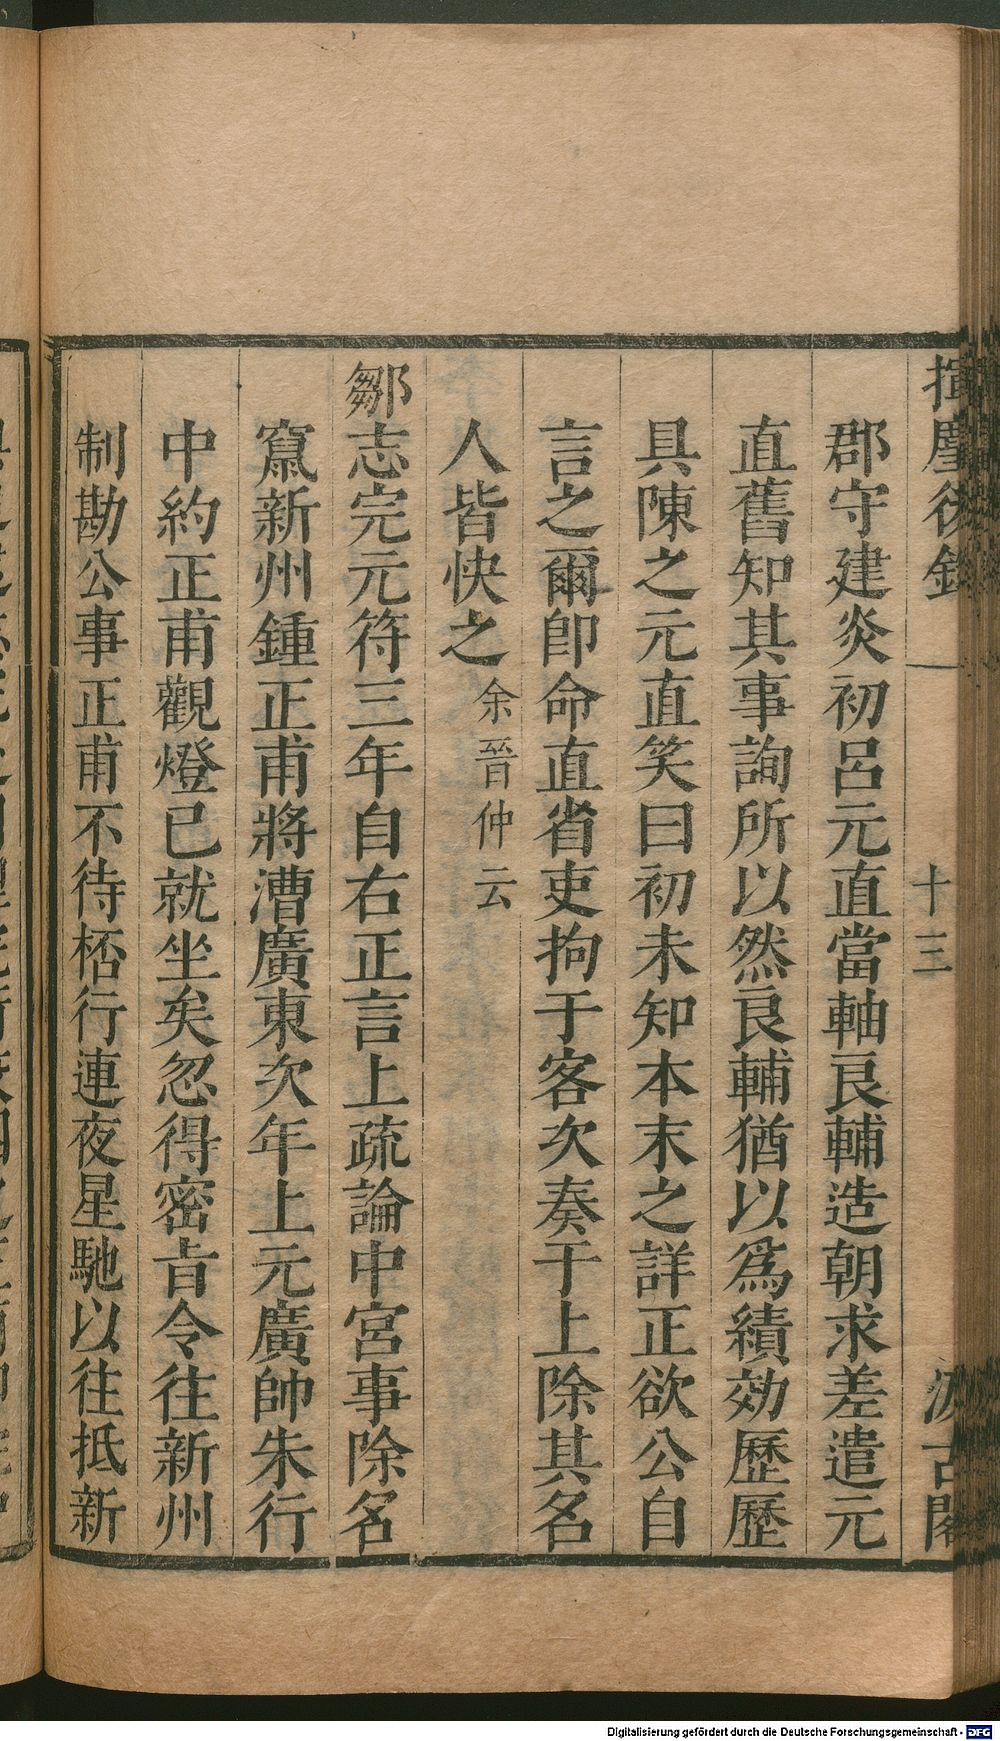 揮麈後錄
一
十三
汲古閣
郡守建炎初呂元直當軸良輔造朝求差遣元
直舊知其事詢所以然良輔猶以爲績効歷歷
具陳之元直笑曰初未知本末之詳正欲公自
言之爾卽命直省吏拘于客次奏于上除其名
人皆快之余晉仲云
鄒志完元符三年自右正言上疏論中宮事除名
竄新州鍾正甫將漕廣東次年上元廣帥朱行
中約正甫觀燈已就坐矣忽得密旨令往新州
制勘公事正甫不待桮行連夜星馳以往抵新
Digitalisierung gefördert durch die Deutsche Forschungsgemeinschaft - DFG